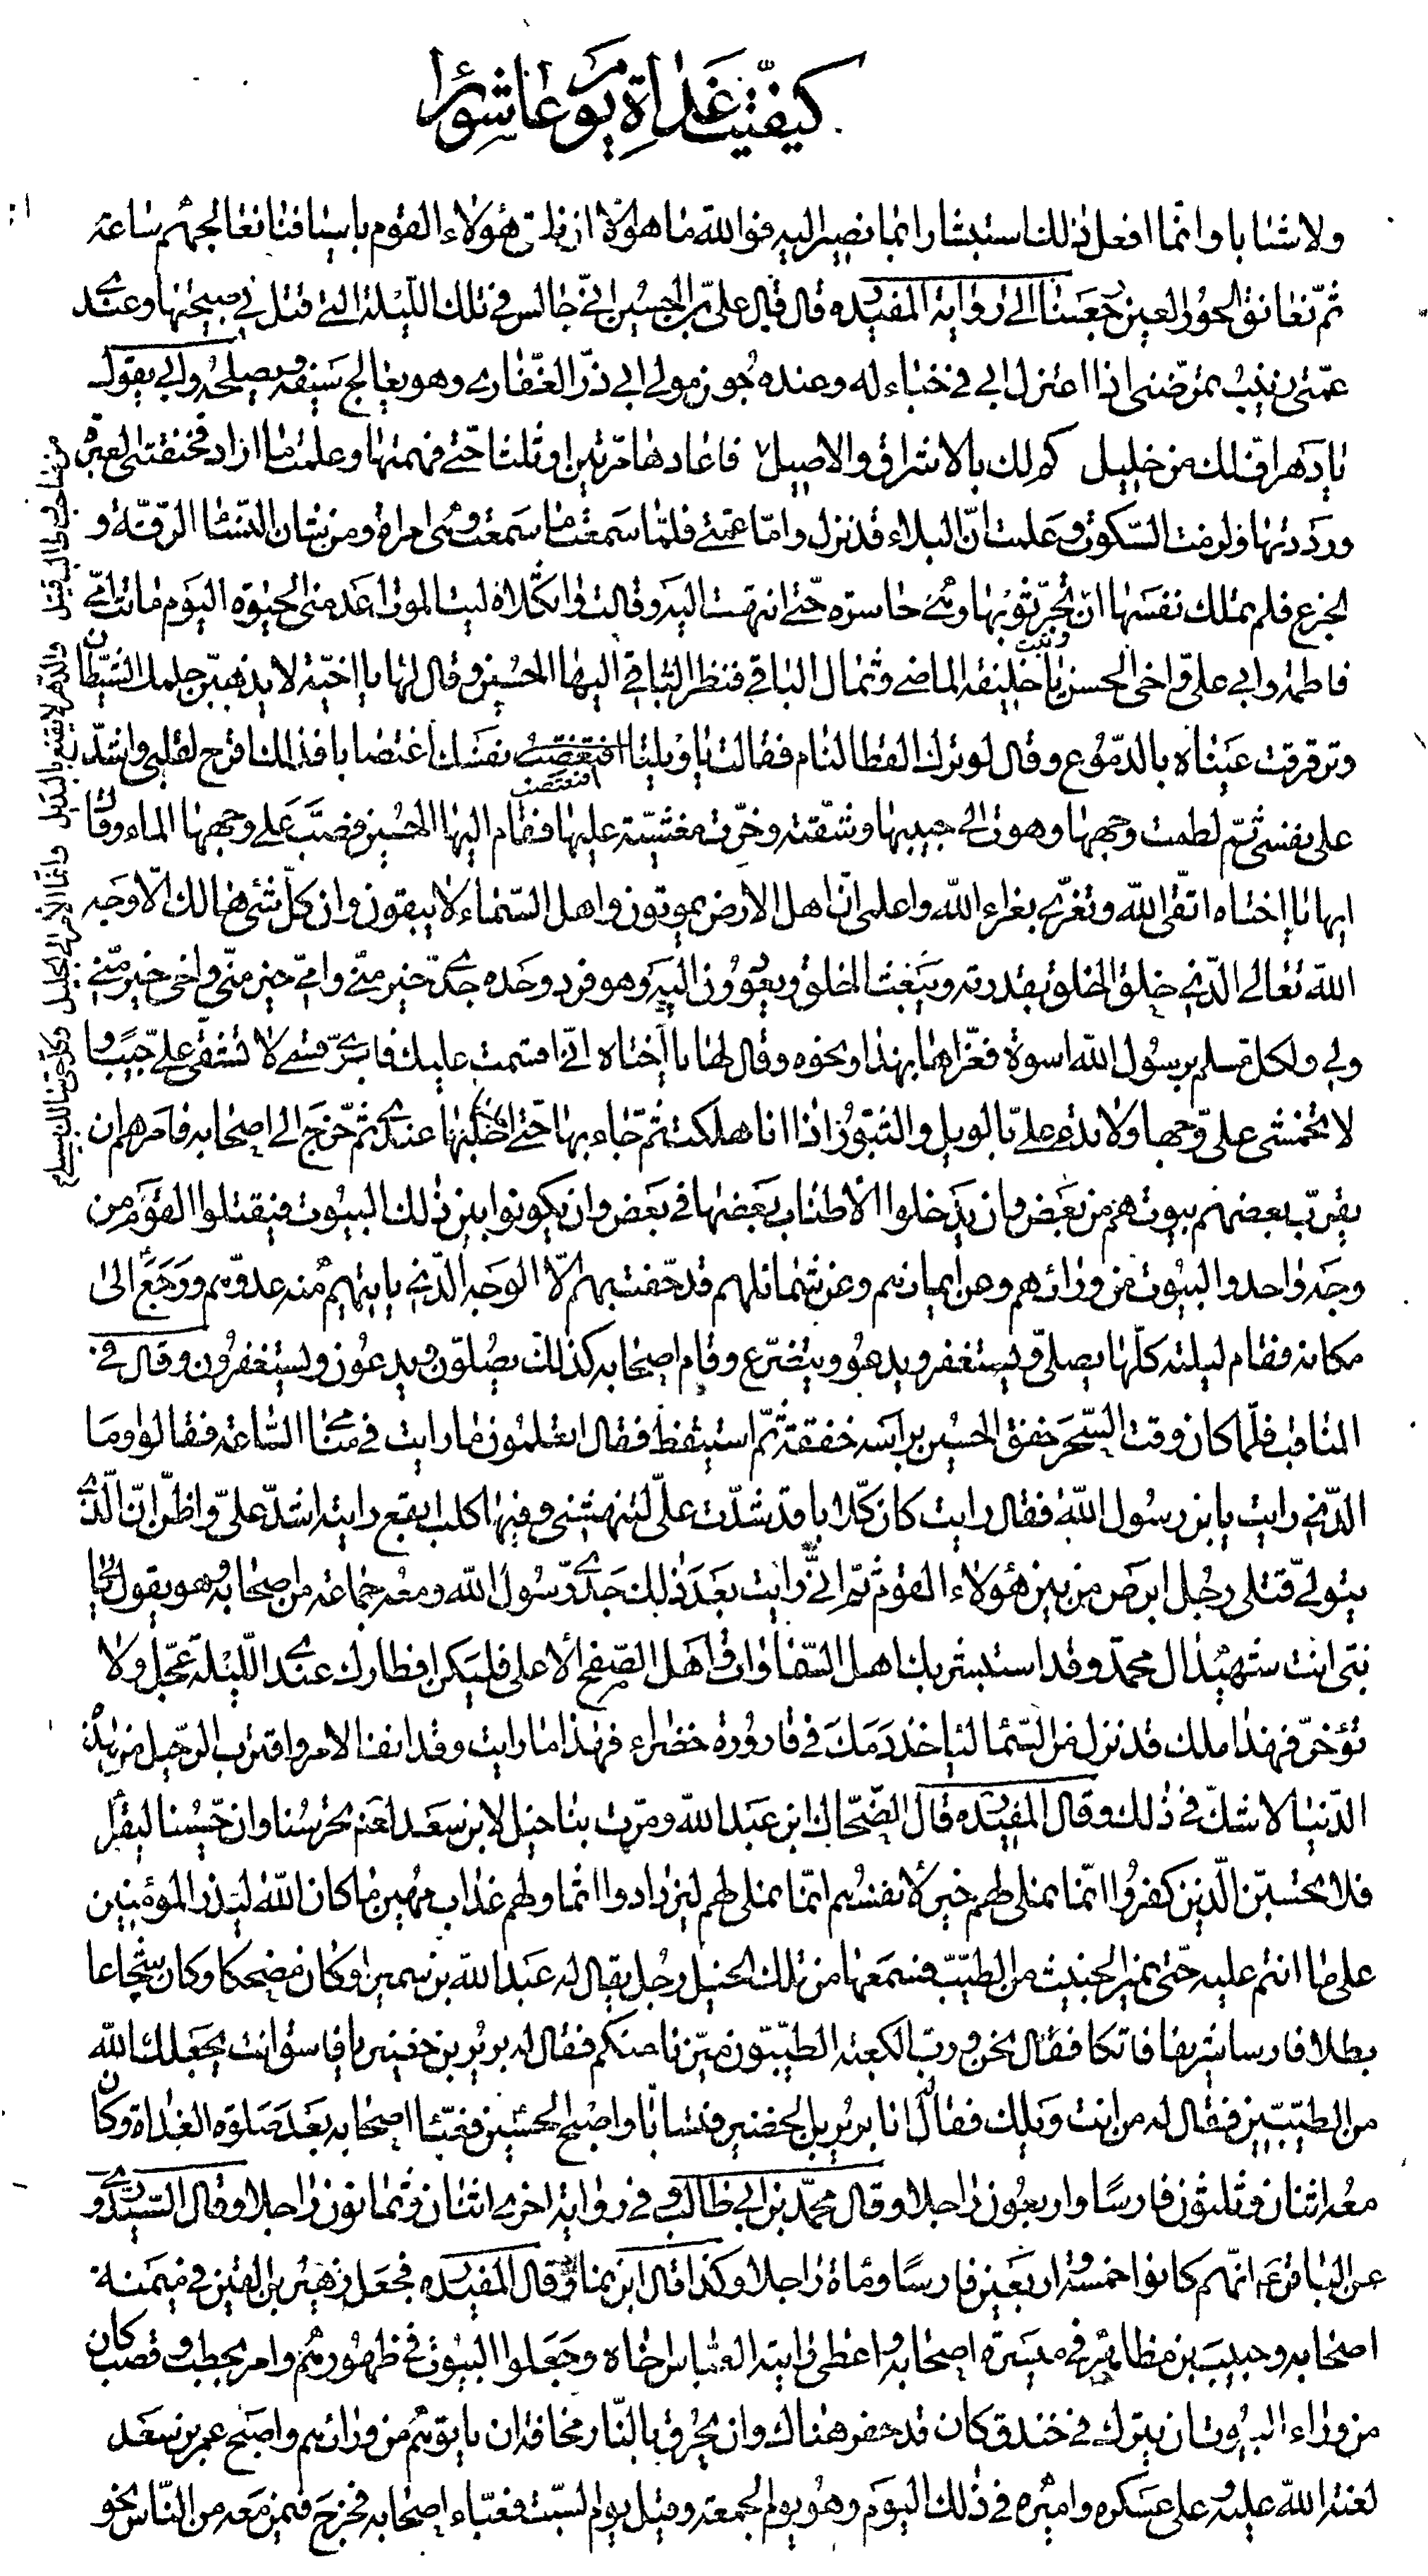 كيفيّت غداة يوم عاشورا
ولا شابا وانّما افعل ذلك استبشارا بما نصير اليه فوالله ما هو الّا ان نلقى هؤلاء القوم باسيافنا نعالجهم ساعة
ثمّ نعانق الحور العين رجعنا الى رواية المفيد ره قال قال علىّ بن الحسين انّى جالس فى تلك اللّيلة الّتى قتل ابى فى صبيحتها وعندى
عمّتى زينب تمرّضنى اذا اعتزل ابى فى خباء له وعنده جون مولى ابى ذرّ الغفارى وهو يعالج سيفه ويصلحه وابى يقول
يا دهر اف لك من خليل كم لك بالاشراق والاصيل فاعادها مرّتين او ثلثا حتّى فهمتها وعلمت ما اراد فخنقتنى العبرة
ورددتها ولزمت السّكوت وعلمت انّ البلاء قد نزل وامّا عمّتى فلمّا سمعت ما سمعت وهى امراة ومن شان النّساء الرّقّة و
الجزع فلم تملك نفسها ان تجرّ ثوبها وهى حاسرة حتّى انتهت اليه وقالت واثكلاه ليت الموت اعدمنى الحيوة اليوم ماتت امّى
فاطمة وابى علىّ واخى الحسن يا خليفة الماضى وثمال الباقى فنظر اليها الحسين وقال لها يا اخيّة لا يذهبنّ حلمك الشّيطان
وترقرقت عيناه بالدّموع وقال لو ترك القطا لنام فقالت يا ويلتا افتغتصب نفسك اغتصابا فذلك اقرح لقلبى واشدّ
على نفسى ثمّ لطمت وجهها وهوت الى جيبها وشقّته وخرّت مغشيّة عليها فقام اليها الحسين فصبّ على وجهها الماء وقال
ايها يا اختاه اتّقى الله وتعزّى بعزاء الله واعلمى انّ اهل الارض يموتون واهل السّماء لا يبقون وان كلّ شئ هالك الّا وجه
الله تعالى الّذى خلق الخلق بقدرته ويبعث الخلق ويعودون اليه وهو فرد وحده جدّى خير منّى وابى خير منّى وامّى خير منّى واخى خير منّى
ولى ولكل مسلم برسول الله اسوة فعزّاها بهذا ونحوه وقال لها يا اختاه انّى اقسمت عليك فابرّى قسمى لا تشقّى علىّ جيبا و
لا تخمشى علىّ وجها ولا تدعى علىّ بالويل والثّبور اذا انا هلكت ثمّ جاء بها حتّى اجلسها عندى ثمّ خرج الى اصحابه فامرهم ان
يقرّب بعضهم بيوتهم من بعض وان يدخلوا الاطناب بعضها فى بعض وان يكونوا بين ذلك البيوت فيقتلوا القوم من
وجه واحد والبيوت من ورائهم وعن ايمانهم وعن شمائلهم قد حفّت بهم الّا الوجه الّذى ياتيهم منه عدوّهم ورجع الى
مكانه فقام ليلته كلّها يصلّى ويستغفر ويدعو ويتضرّع وقام اصحابه كذلك يصلّون ويدعون ويستغفرون وقال فى
المناقب فلمّا كان وقت السّحر خفق الحسين براسه خفقة ثمّ استيقظ فقال اتعلمون ما رايت فى منامى السّاعة فقالوا وما
الّذى رايت يابن رسول الله فقال رايت كان كلابا قد شدّت علىّ لتنهشنى وفيها كلب ابقع رايته اشدّ علىّ واظنّ انّ الّذى
يتولّى قتلى رجل ابرص من بين هؤلاء القوم ثمّ انّى رايت بعد ذلك جدّى رسول الله ومعه جماعة من اصحابه وهو يقول لى يا
بنىّ انت شهيد ال محمّد وقد استبشر بك اهل السّماوات واهل الصّفيح الاعلى فليكن افطارك عندى اللّيلة عجّل ولا
تؤخّر فهذا ملك قد نزل من السّماء لياخذ دمك فى قارورة خضراء فهذا ما رايت وقد انف الامر واقترب الرّحيل من هذه
الدّنيا لا شكّ فى ذلك وقال المفيد ره قال الضّحّاك ابن عبد الله ومرّت بنا خيل لابن سعد لعنه تحرسنا وان حسينا ليقرأ
فلا يحسبنّ الّذين كفروا انّما نملى لهم خير لانفسهم انّما نملى لهم ليزدادوا اثما ولهم عذاب مهين ما كان الله ليذر المؤمنين
على ما انتم عليه حتّى يميز الخبيث من الطيّب فسمعها من تلك الخيل رجل يقال له عبد الله بن سمير وكان مضحكا وكان شجاعا
بطلا فارسا شريفا فاتكا فقال نحن وربّ الكعبة الطيّبون ميّزنا منكم فقال له برير بن خضير يا فاسق انت يجعلك الله
من الطيّبين فقال له من انت ويلك فقال انا برير بن الخضير فتسابّا واصبح الحسين فعبّا اصحابه بعد صلوة الغداة وكان
معه اثنان وثلثون فارسا واربعون راجلا وقال محمّد بن ابى طالب وفى رواية اخرى اثنان وثمانون راجلا وقال السّيّد روى
عن الباقر ع انّهم كانوا خمسة واربعين فارسا ومأة راجل وكذا قال ابن نما وقال المفيد ره فجعل زهير بن القين فى ميمنة
اصحابه وحبيب بن مظاهر فى ميسرة اصحابه واعطى رايته العبّاس اخاه وجعلوا البيوت فى ظهورهم وامر بحطب وقصب كان
من وراء البيوت ان يترك فى خندق كان قد حفر هناك وان يحرق بالنّار مخافة ان ياتوهم من ورائهم واصبح عمر بن سعد
لعنة الله عليه على عسكره واميره فى ذلك اليوم وهو يوم الجمعة وقيل يوم السّبت فعبّاء اصحابه فخرج فيمن معه من النّاس نحو
من صاحب وطالب قتيل والدّهر لا يقنع بالبديل وانّما الامر الى الجليل وكلّ حىّ سالك سبيلى